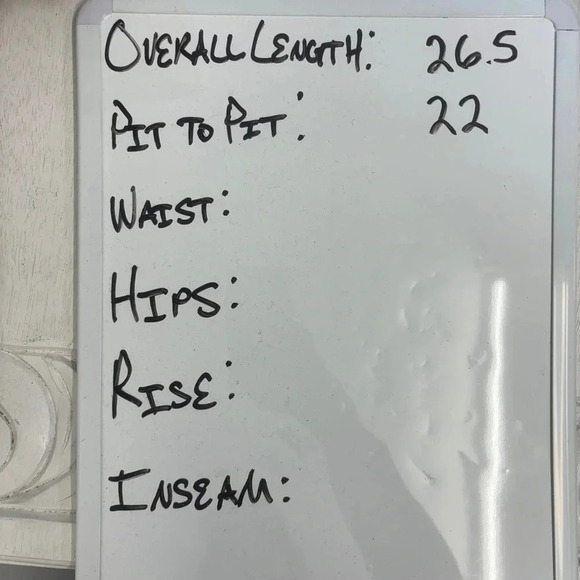 OVERALL LENGTH: 26.5
PIT TO PIT: 22
WAIST:
HIPS:
RISE:
INSEAM: